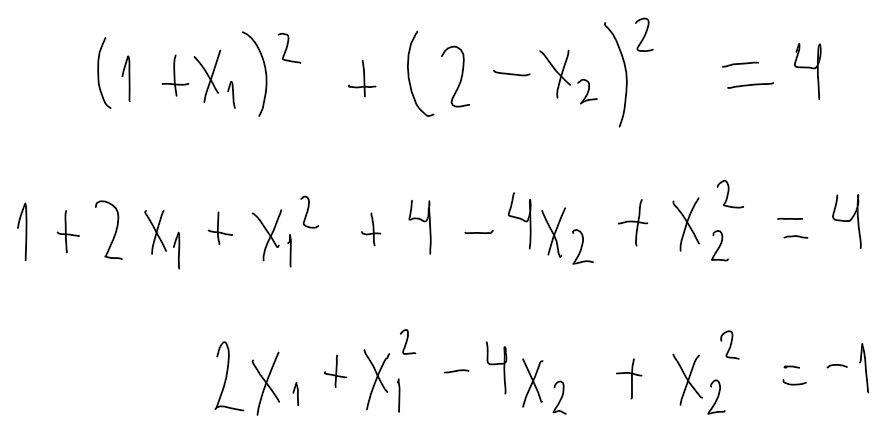 (1 + x₁)² + (2 − x₂)² = 4
1 + 2x₁ + x₁² + 4 − 4x₂ + x₂² = 4
2x₁ + x₁² − 4x₂ + x₂² = −1